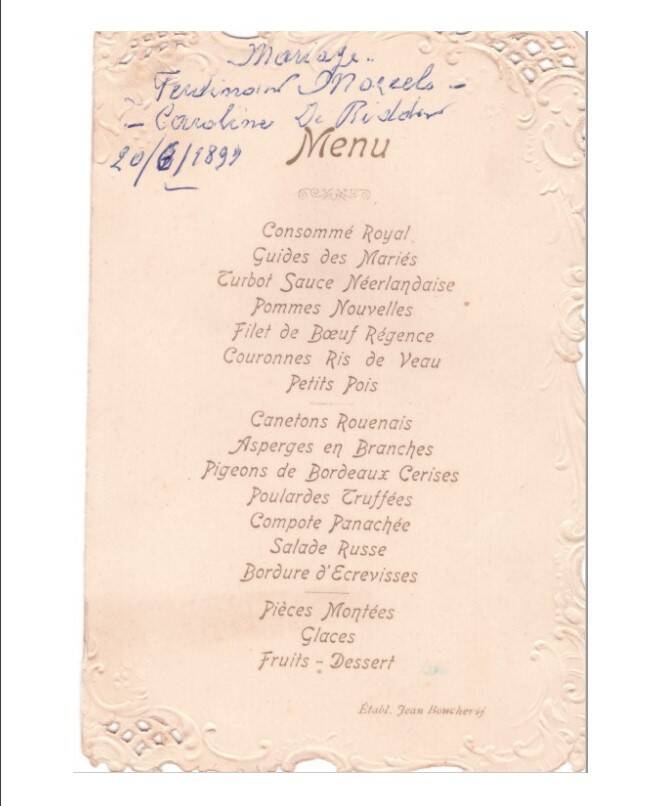 Mariage..
Ferdinand Marcels -
- Caroline De Ridder
20/6/1899
Menu
Consommé Royal
Guides des Mariés
Turbot Sauce Néerlandaise
Pommes Nouvelles
Filet de Bœuf Régence
Couronnes Ris de Veau
Petits Pois
Canetons Rouenais
Asperges en Branches
Pigeons de Bordeaux Cerises
Poulardes Truffées
Compote Panachée
Salade Russe
Bordure d'Ecrevisses
Pièces Montées
Glaces
Fruits - Dessert
Établ. Jean Boucherij